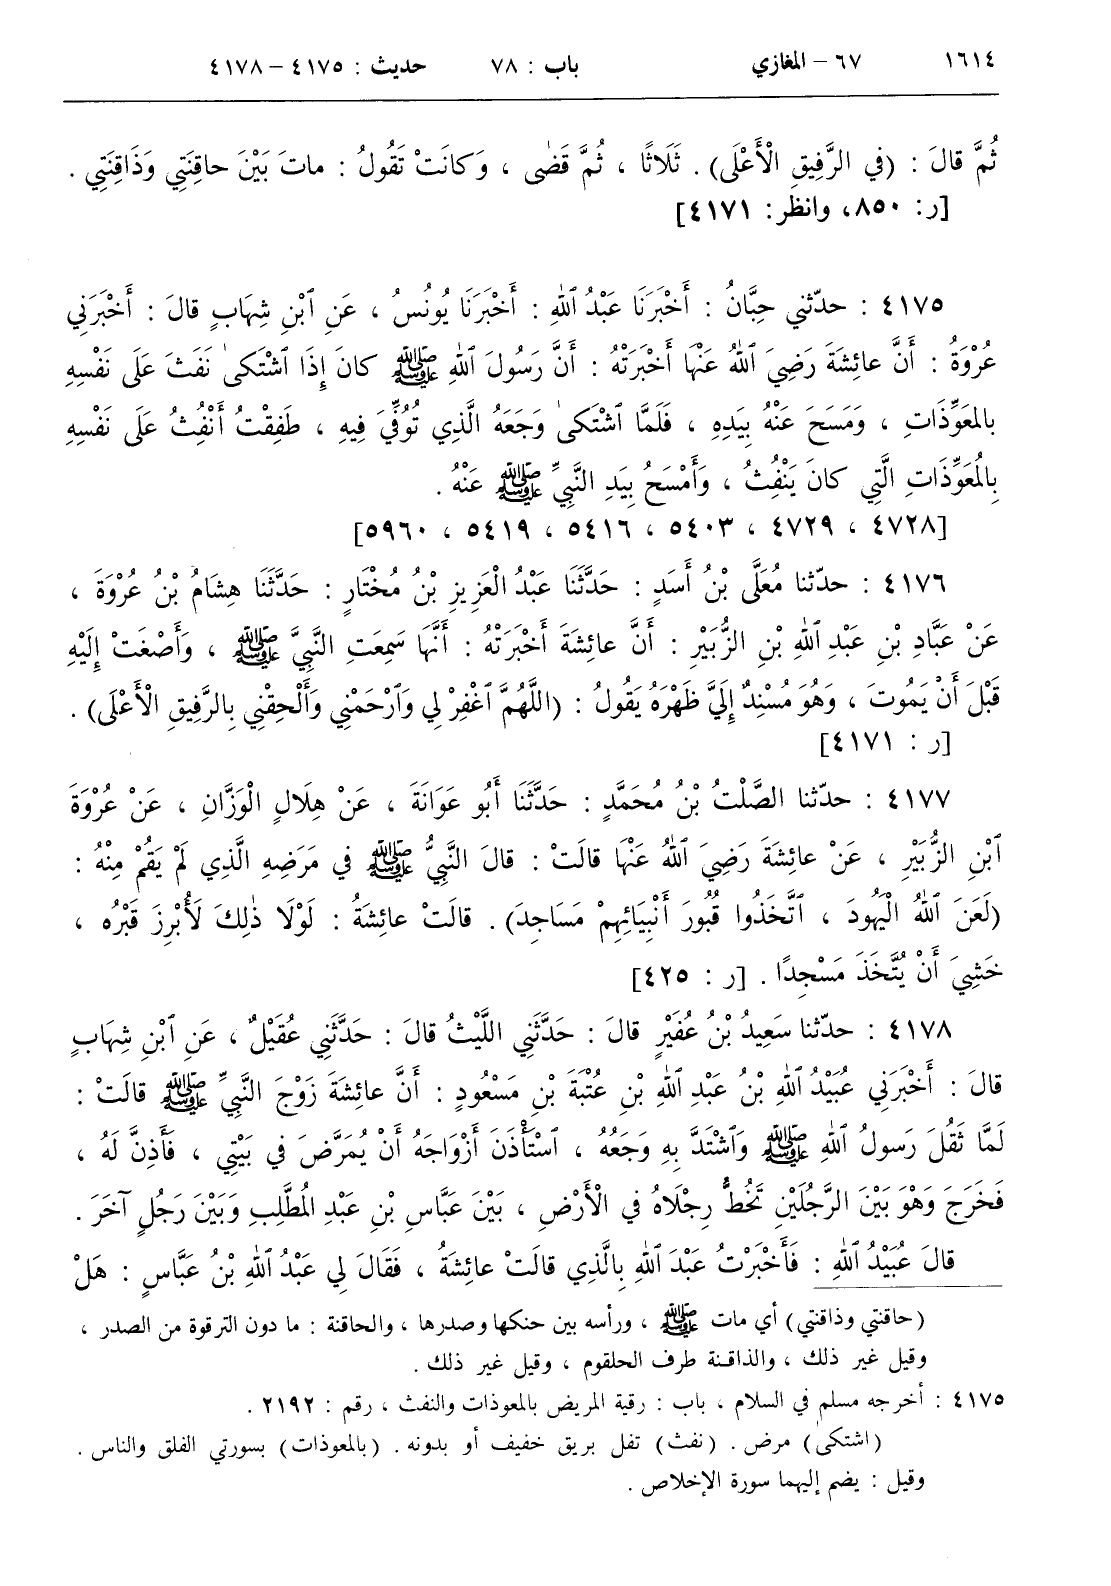 ١٦١٤ ٦٧ - المغازي باب : ٧٨ حديث : ٤١٧٥ - ٤١٧٨
ثُمَّ قالَ : (في الرَّفِيقِ الْأَعْلَى) . ثَلَاثًا ، ثُمَّ قَضٰى ، وَكانَتْ تَقُولُ : ماتَ بَيْنَ حاقِنَتِي وَذَاقِنَتِي .
[ر : ٨٥٠، وانظر : ٤١٧١]
٤١٧٥ : حدّثني حِبَّانُ : أَخْبَرَنَا عَبْدُ ٱللهِ : أَخْبَرَنَا يُونُسُ ، عَنِ ٱبْنِ شِهَابٍ قالَ : أَخْبَرَنِي
عُرْوَةُ : أَنَّ عائِشَةَ رَضِيَ ٱللهُ عَنْهَا أَخْبَرَتْهُ : أَنَّ رَسُولَ ٱللهِ ﷺ كانَ إِذَا ٱشْتَكىٰ نَفَثَ عَلَى نَفْسِهِ
بالمعَوِّذَاتِ ، وَمَسَحَ عَنْهُ بِيَدِهِ ، فَلَمَّا ٱشْتَكىٰ وَجَعَهُ الَّذِي تُوُفِّيَ فِيهِ ، طَفِقْتُ أَنْفُِثُ عَلَى نَفْسِهِ
بِالمُعَوِّذَاتِ الَّتِي كانَ يَنْفُِثُ ، وَأَمْسَحُ بِيَدِ النَّبِيِّ ﷺ عَنْهُ .
[٤٧٢٨ ، ٤٧٢٩ ، ٥٤٠٣ ، ٥٤١٦ ، ٥٤١٩ ، ٥٩٦٠]
٤١٧٦ : حدّثنا مُعَلَّى بْنُ أَسَدٍ : حَدَّثَنَا عَبْدُ الْعَزِيزِ بْنُ مُخْتَارٍ : حَدَّثَنَا هِشَامُ بْنُ عُرْوَةَ ،
عَنْ عَبَّادِ بْنِ عَبْدِ ٱللهِ بْنِ الزُّبَيْرِ : أَنَّ عائِشَةَ أَخْبَرَتْهُ : أَنَّهَا سَمِعَتِ النَّبِيَّ ﷺ ، وَأَصْغَتْ إِلَيْهِ
قَبْلَ أَنْ يَمُوتَ ، وَهُوَ مُسْنِدٌ إِلَيَّ ظَهْرَهُ يَقُولُ : (اللَّهُمَّ ٱغْفِرْ لِي وَٱرْحَمْنِي وَأَلْحِقْنِي بِالرَّفِيقِ الْأَعْلَى) .
[ر : ٤١٧١]
٤١٧٧ : حدّثنا الصَّلْتُ بْنُ مُحَمَّدٍ : حَدَّثَنَا أَبُو عَوَانَةَ ، عَنْ هِلَالٍ الْوَزَّانِ ، عَنْ عُرْوَةَ
ٱبْنِ الزُّبَيْرِ ، عَنْ عائِشَةَ رَضِيَ ٱللهُ عَنْهَا قالَتْ : قالَ النَّبِيُّ ﷺ في مَرَضِهِ الَّذِي لَمْ يَقُمْ مِنْهُ :
(لَعَنَ ٱللهُ الْيَهُودَ ، ٱتَّخَذُوا قُبُورَ أَنْبِيَائِهِمْ مَسَاجِدَ) . قالَتْ عائِشَةُ : لَوْلَا ذٰلِكَ لَأُبْرِزَ قَبْرُه ،
خَشِيَ أَنْ يُتَّخَذَ مَسْجِدًا . [ر : ٤٢٥]
٤١٧٨ : حدّثنا سَعِيدُ بْنُ عُفَيْرٍ قالَ : حَدَّثَنِي اللَّيْثُ قالَ : حَدَّثَنِي عُقَيْلٌ ، عَنِ ٱبْنِ شِهَابٍ
قالَ : أَخْبَرَنِي عُبَيْدُ ٱللهِ بْنُ عَبْدِ ٱللهِ بْنِ عُتْبَةَ بْنِ مَسْعُودٍ : أَنَّ عائِشَةَ زَوْجَ النَّبِيِّ ﷺ قالَتْ :
لَمَّا ثَقُلَ رَسُولُ ٱللهِ ﷺ وَٱشْتَدَّ بِهِ وَجَعُهُ ، ٱسْتَأْذَنَ أَزْوَاجَهُ أَنْ يُمَرَّضَ في بَيْتِي ، فَأَذِنَّ لَهُ ،
فَخَرَجَ وَهْوَ بَيْنَ الرَّجُلَيْنِ تَخُطُّ رِجْلَاهُ في الْأَرْضِ ، بَيْنَ عَبَّاسِ بْنِ عَبْدِ المُطَّلِبِ وَبَيْنَ رَجُلٍ آخَرَ .
قالَ عُبَيْدُ ٱللهِ : فَأَخْبَرْتُ عَبْدَ ٱللهِ بِالَّذِي قالَتْ عائِشَةُ ، فَقَالَ لِي عَبْدُ ٱللهِ بْنُ عَبَّاسٍ : هَلْ
(حاقنتي وذاقنتي) أي مات ﷺ ، ورأسه بين حنكها وصدرها ، والحاقنة : ما دون الترقوة من الصدر ،
وقيل غير ذلك ، والذاقنة طرف الحلقوم ، وقيل غير ذلك .
٤١٧٥ : أخرجه مسلم في السلام ، باب : رقية المريض بالمعوذات والنفث ، رقم : ٢١٩٢ .
(اشتكى) مرض . (نفث) تفل بريق خفيف أو بدونه . (بالمعوذات) بسورتي الفلق والناس .
وقيل : يضم إليهما سورة الإخلاص .